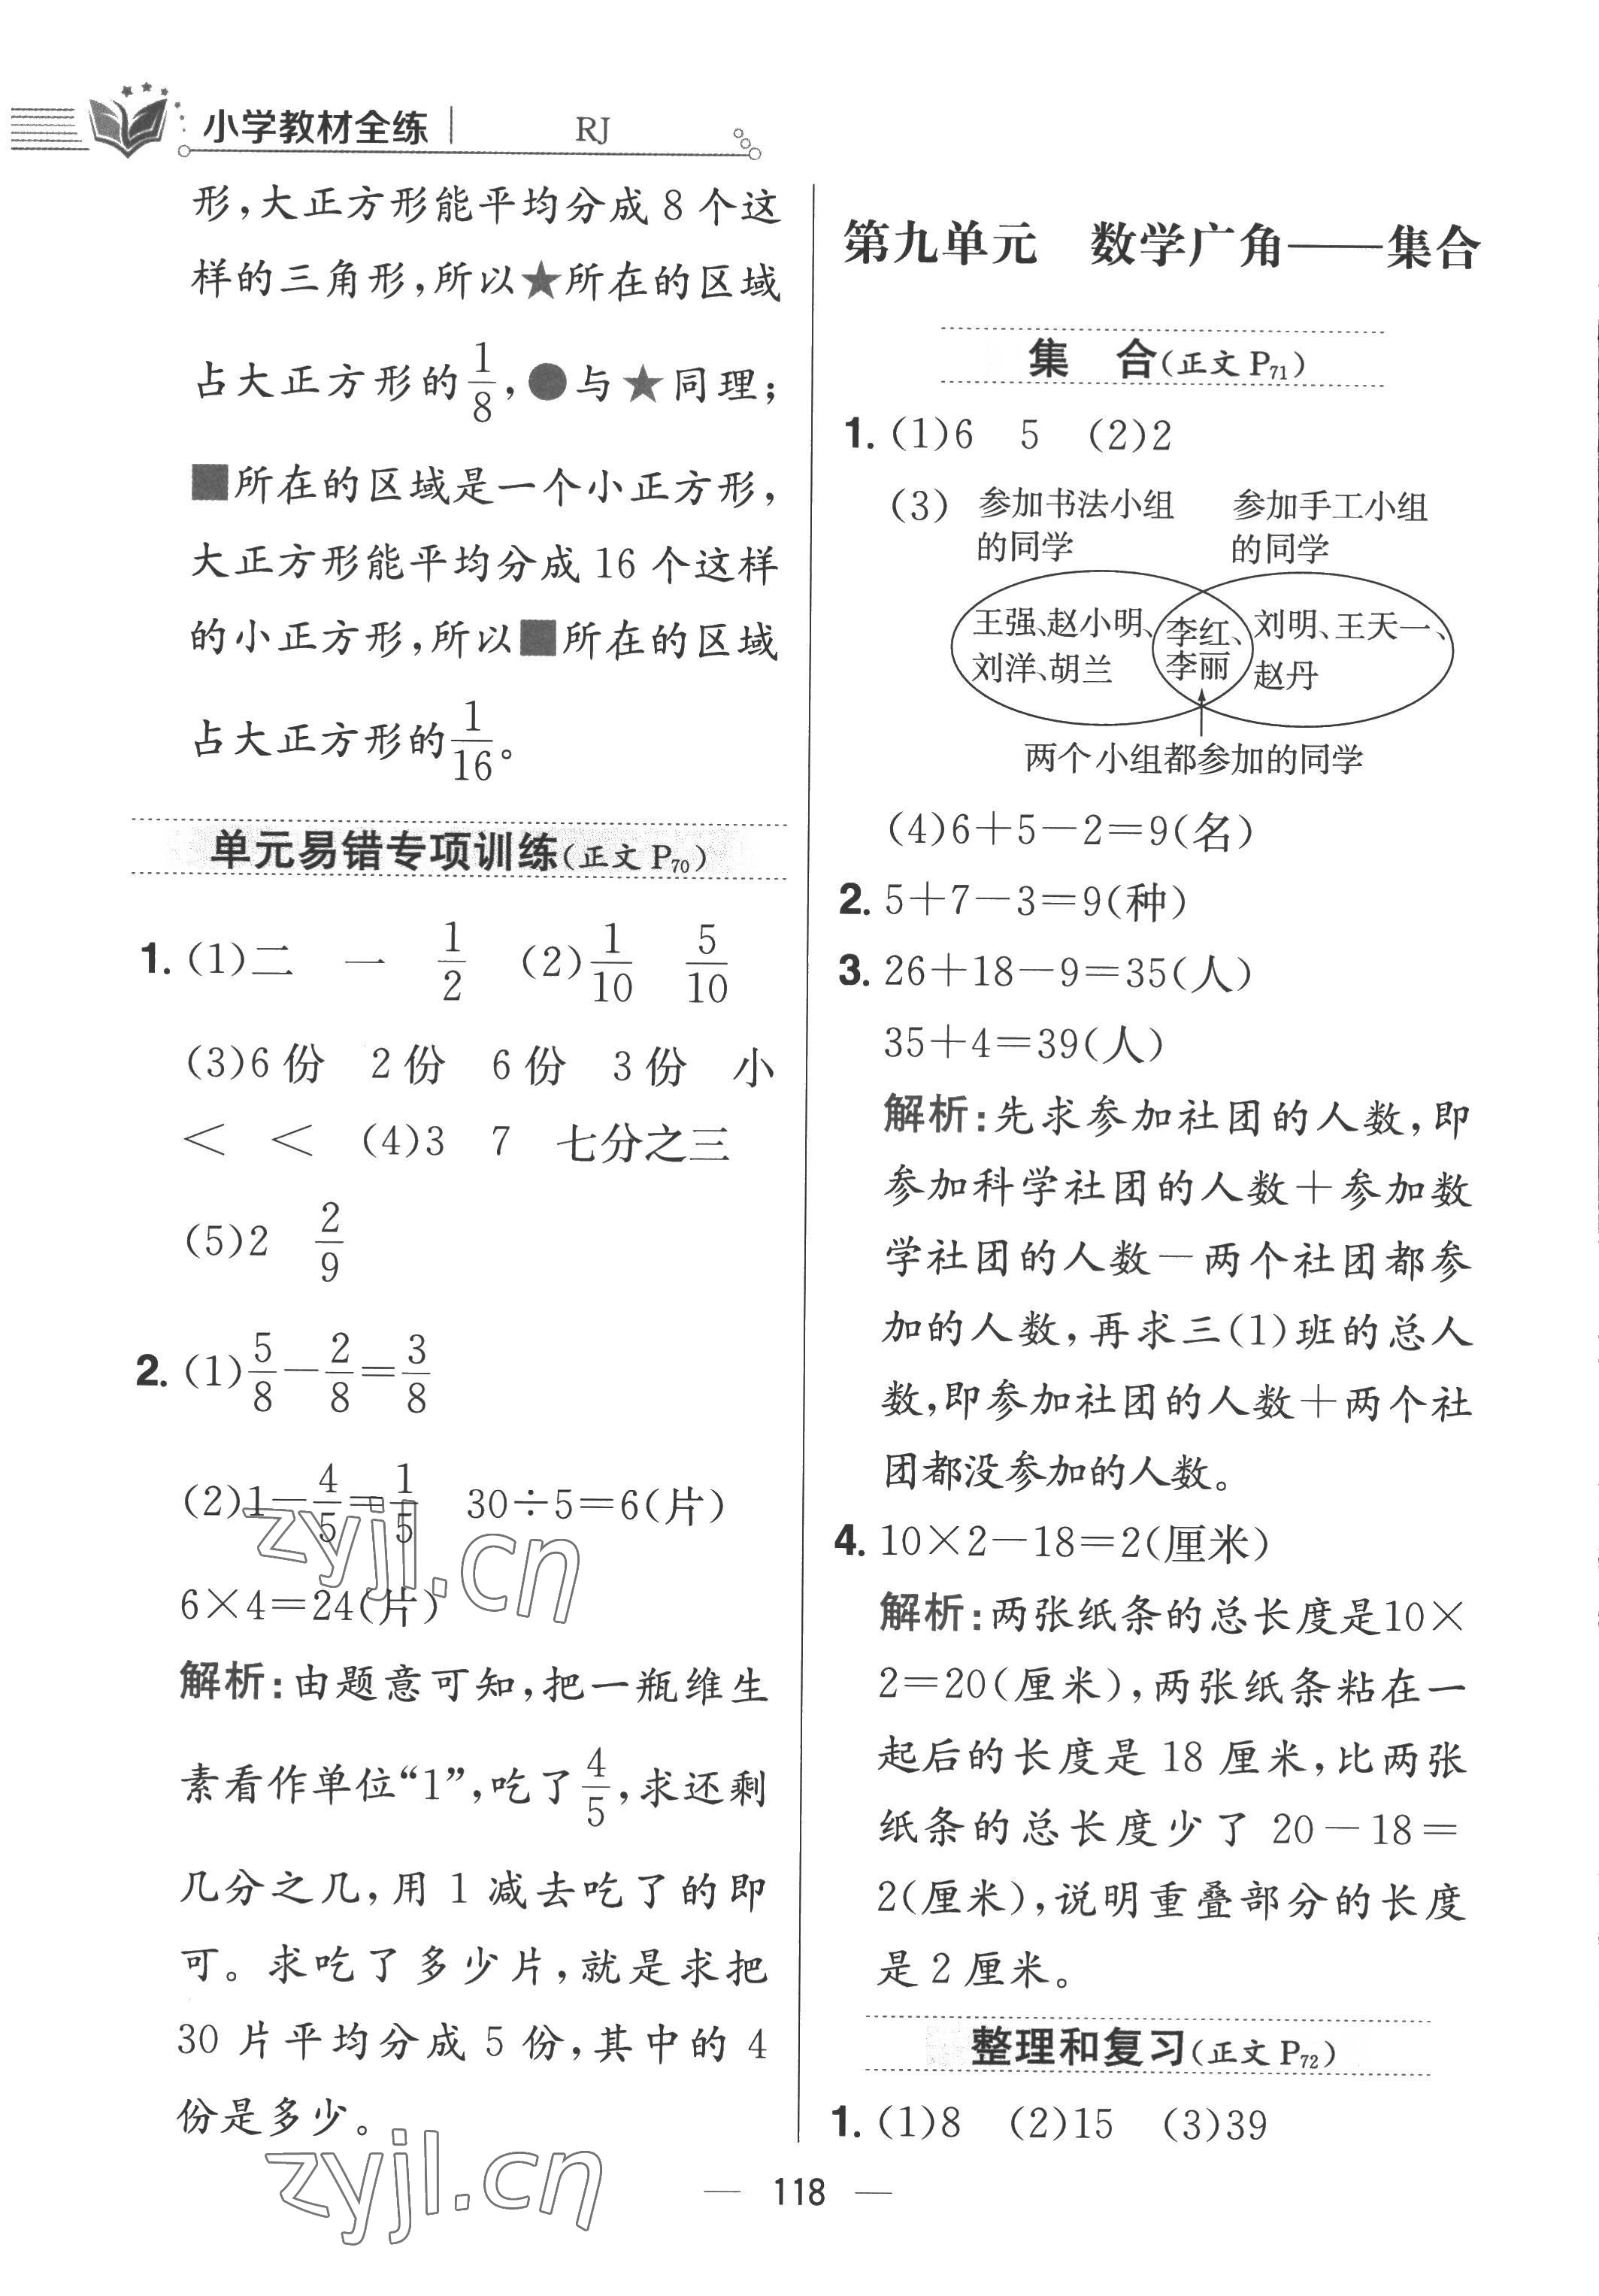 小学教材全练 RJ
形,大正方形能平均分成 8 个这
样的三角形,所以★所在的区域
占大正方形的1/8,●与★同理;
■所在的区域是一个小正方形,
大正方形能平均分成 16 个这样
的小正方形,所以■所在的区域
占大正方形的1/16。
单元易错专项训练(正文 P70)
1. (1)二 一 1/2 (2)1/10 5/10
(3)6 份 2 份 6 份 3 份 小
< < (4)3 7 七分之三
(5)2 2/9
2. (1)5/8-2/8=3/8
(2)1-4/5=1/5 30÷5=6(片)
6×4=24(片)
解析:由题意可知,把一瓶维生
素看作单位“1”,吃了4/5,求还剩
几分之几,用 1 减去吃了的即
可。求吃了多少片,就是求把
30 片平均分成 5 份,其中的 4
份是多少。
第九单元 数学广角——集合
集 合(正文 P71)
1. (1)6 5 (2)2
(3) 参加书法小组 参加手工小组
的同学 的同学
王强、赵小明、 李红、 刘明、王天一、
刘洋、胡兰 李丽 赵丹
两个小组都参加的同学
(4)6+5-2=9(名)
2. 5+7-3=9(种)
3. 26+18-9=35(人)
35+4=39(人)
解析:先求参加社团的人数,即
参加科学社团的人数+参加数
学社团的人数-两个社团都参
加的人数,再求三(1)班的总人
数,即参加社团的人数+两个社
团都没参加的人数。
4. 10×2-18=2(厘米)
解析:两张纸条的总长度是10×
2=20(厘米),两张纸条粘在一
起后的长度是 18 厘米,比两张
纸条的总长度少了 20-18=
2(厘米),说明重叠部分的长度
是 2 厘米。
整理和复习(正文 P72)
1. (1)8 (2)15 (3)39
zyjl.cn
zyjl.cn
— 118 —